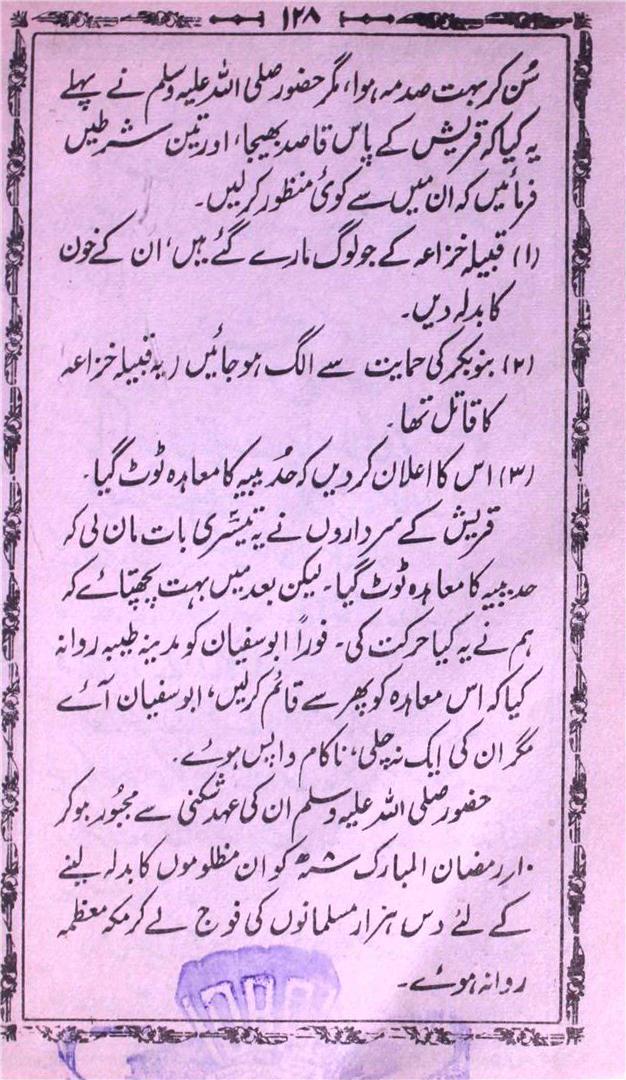 ۱۲۸
سُن کر بہت صدمہ ہوا، مگر حضور صلی اللہ علیہ وسلم نے پہلے
یہ کیا کہ قریش کے پاس قاصد بھیجا، اور تین شرطیں
فرمائیں کہ ان میں سے کوئی منظور کر لیں۔
(۱) قبیلہ خزاعہ کے جو لوگ مارے گئے ہیں، ان کے خون
کا بدلہ دیں۔
(۲) بنو بکر کی حمایت سے الگ ہو جائیں (یہ قبیلہ خزاعہ
کا قاتل تھا۔
(۳) اس کا اعلان کر دیں کہ حُدیبیہ کا معاہدہ ٹوٹ گیا۔
قریش کے سرداروں نے یہ تیسری بات مان لی کہ
حدیبیہ کا معاہدہ ٹوٹ گیا۔ لیکن بعد میں بہت پچھتائے کہ
ہم نے یہ کیا حرکت کی۔ فوراً ابو سفیان کو مدینہ طیبہ روانہ
کیا کہ اس معاہدہ کو پھر سے قائم کر لیں، ابو سفیان آئے
مگر ان کی ایک نہ چلی، ناکام واپس ہوئے۔
حضور صلی اللہ علیہ وسلم ان کی عہد شکنی سے مجبُور ہو کر
۱۰ر رمضان المبارک ۸ھ کو ان مظلوموں کا بدلہ لینے
کے لئے دس ہزار مسلمانوں کی فوج لے کر مکہ معظمہ
روانہ ہوئے۔